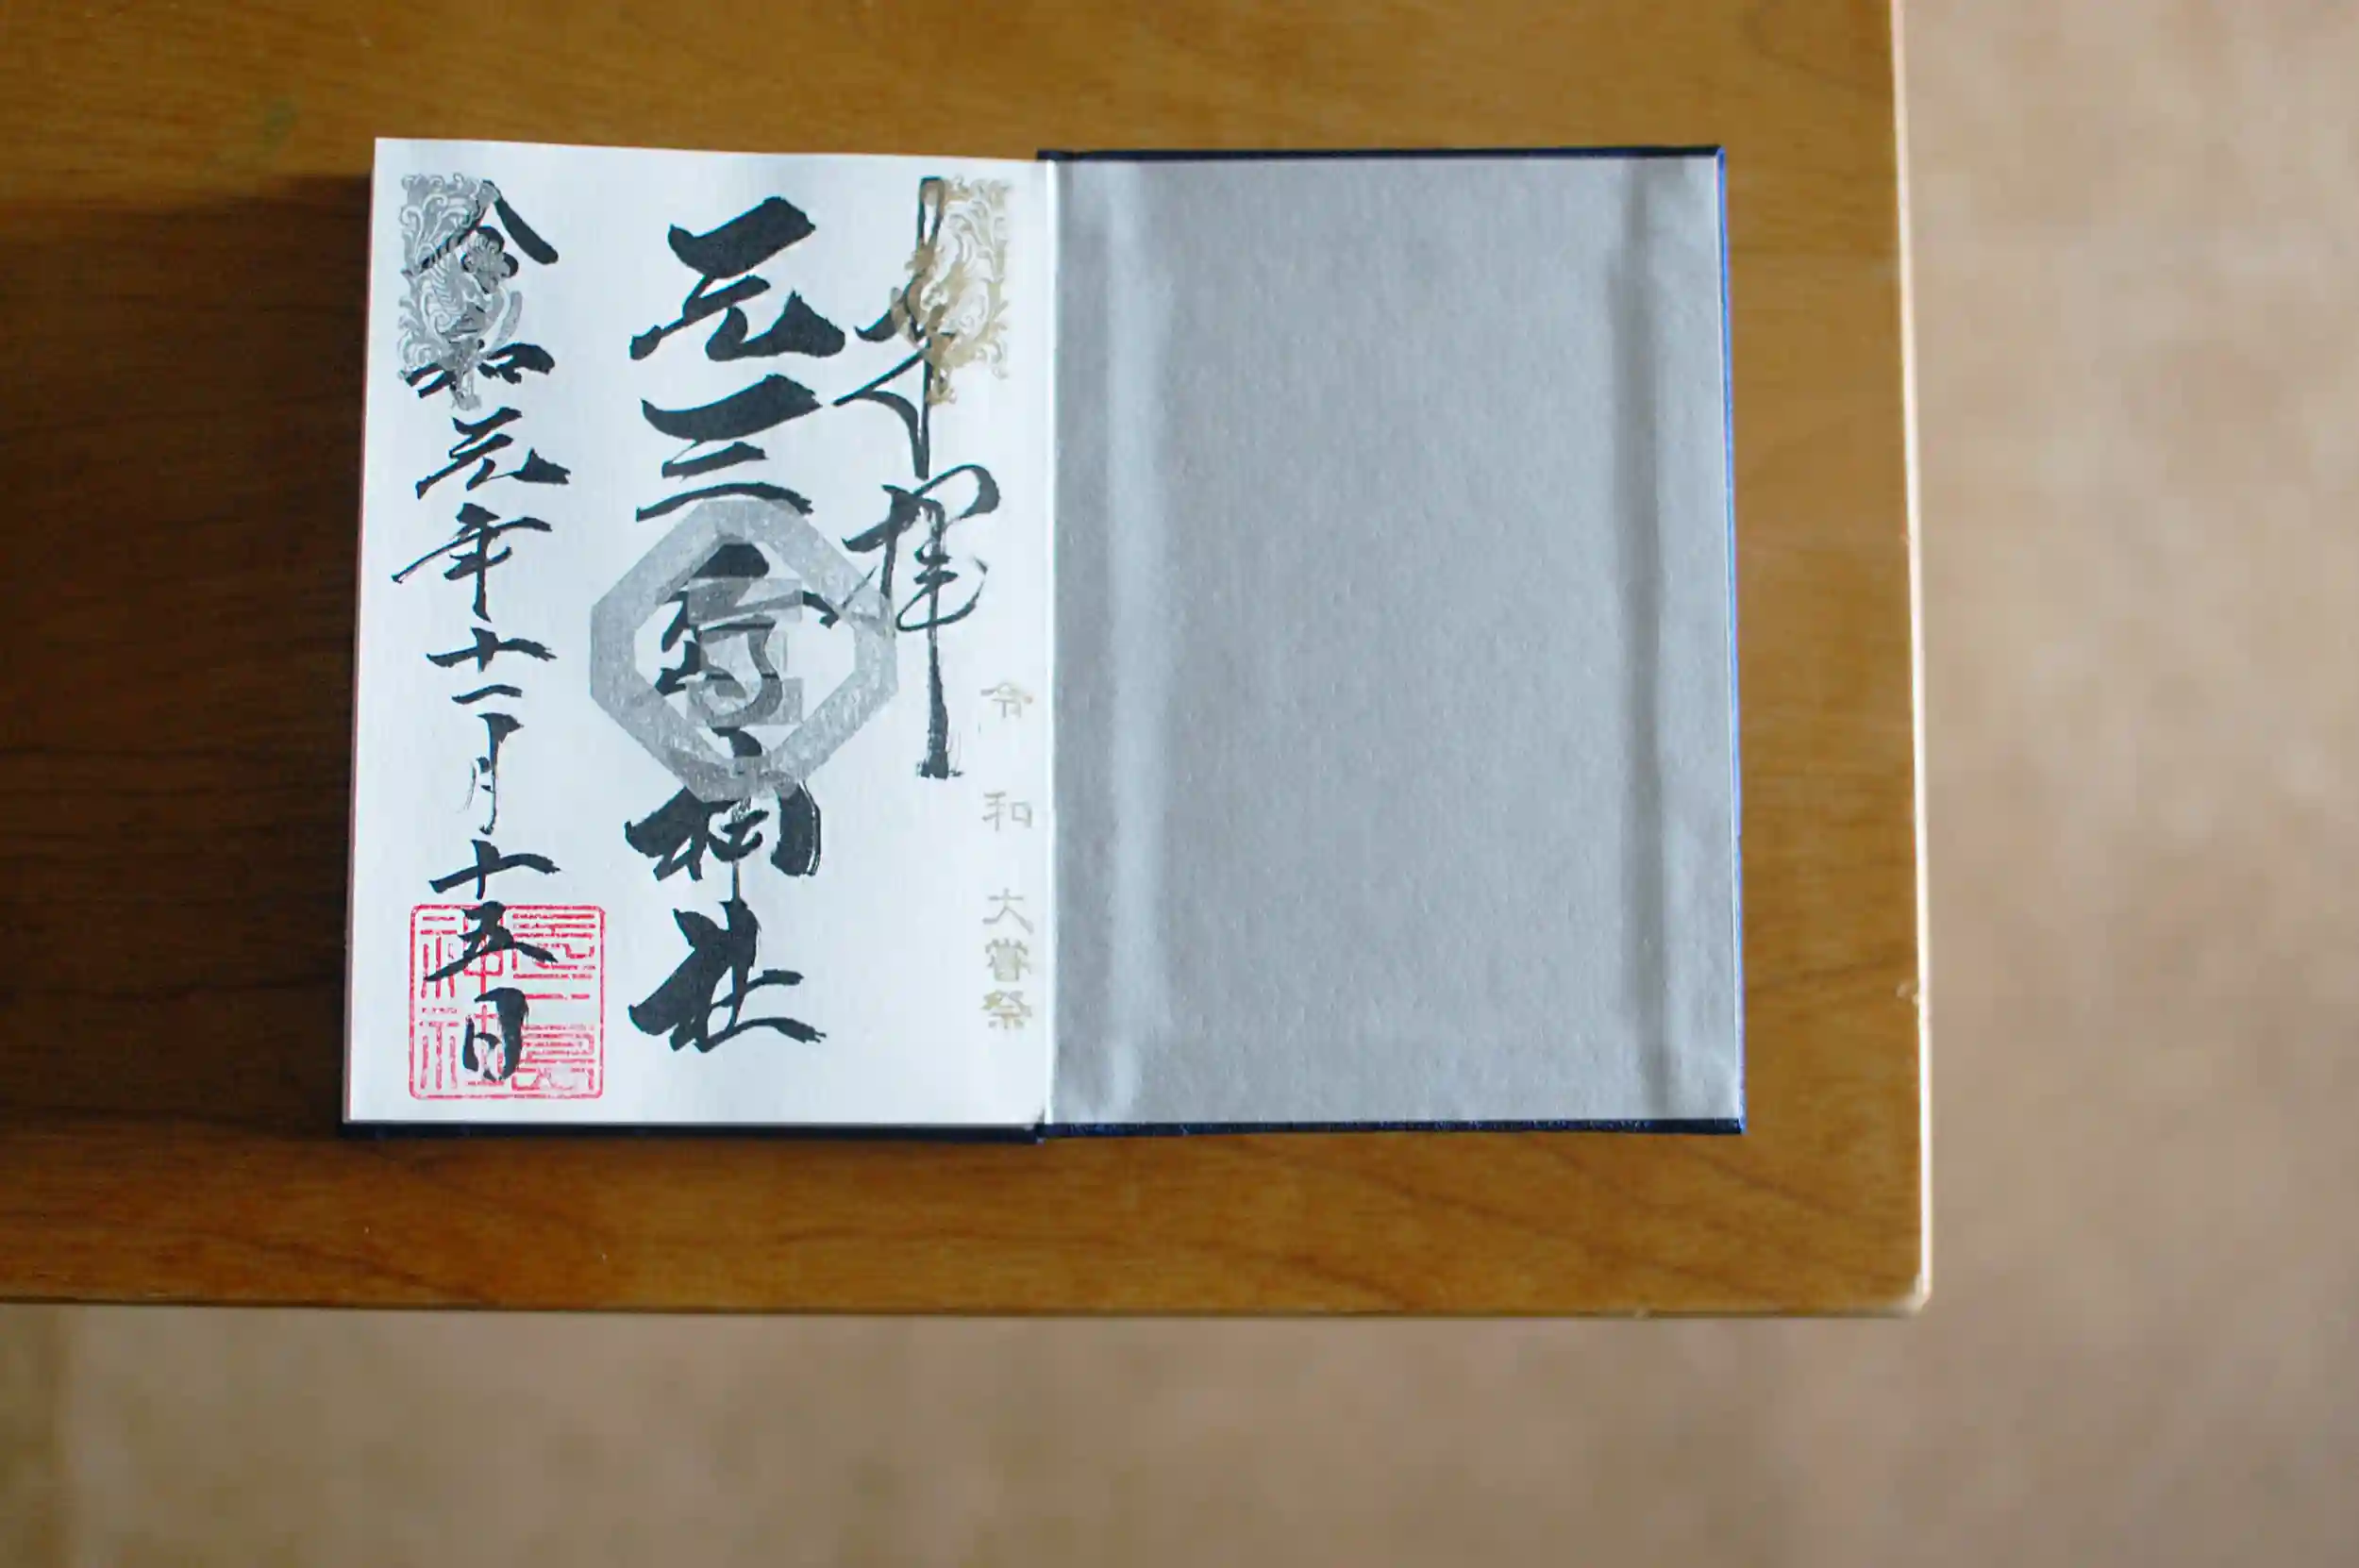 奉拝
令和 大嘗祭
元三島神社
令和元年十一月十五日
元三島
神社